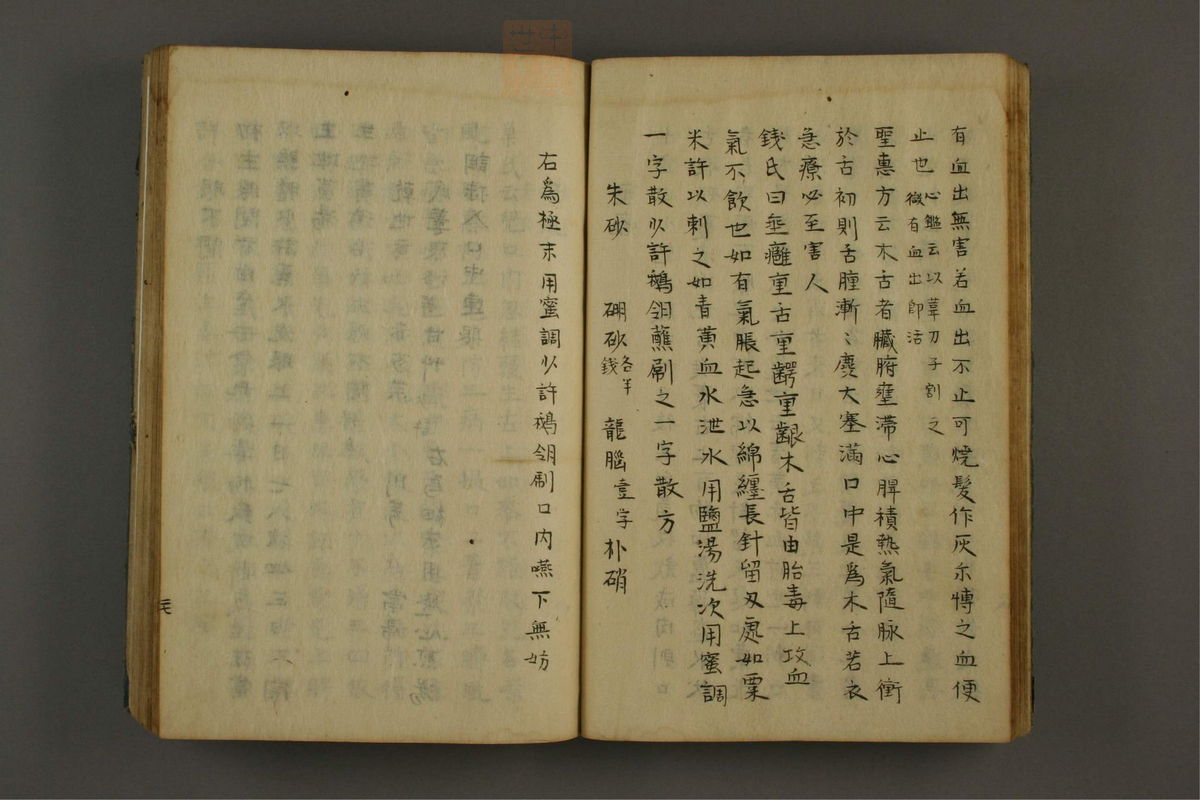 有血出無害若血出不止可燒髮作灰尓愽之血便
止也心鑑云以葦刀子割之
微有血出即活
聖惠方云木舌者臟腑壅滯心脾積熱氣隨脉上衝
於舌初則舌腫漸〻麁大塞滿口中是爲木舌若衣
急療必至害人
錢氏曰垂癰重舌重齶重齦木舌皆由胎毒上攻血
氣不飲也如有氣脹起急以綿纏長針留刃處如粟
米許以刺之如青黄血水泄水用鹽湯洗次用蜜調
一字散少許鵝翎蘸刷之一字散方
朱砂 硼砂各半錢 龍腦壹字 朴硝
右爲極末用蜜調少許鵝翎刷口内嚥下無妨